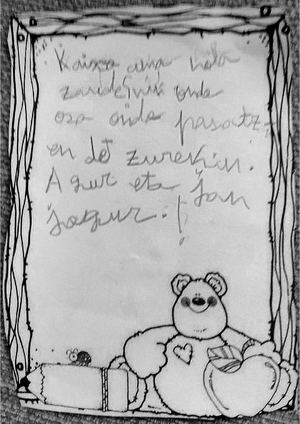 Kaixo ama nola
zaudenik onde
oso onda pasatz-
en det zurekin.
Agur eta jan
jogur.!